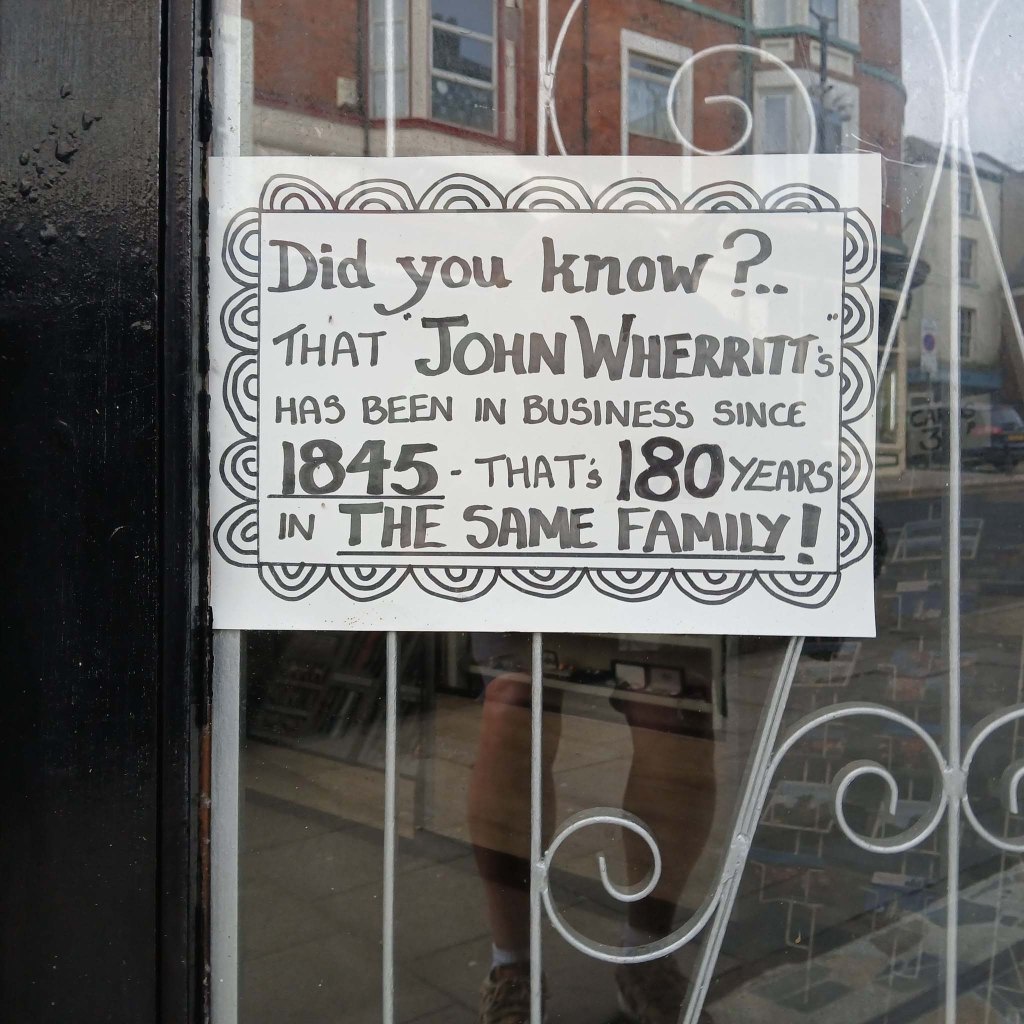 Did you know?..
THAT "JOHN WHERRITT's"
HAS BEEN IN BUSINESS SINCE
1845 - THAT's 180 YEARS
IN THE SAME FAMILY!